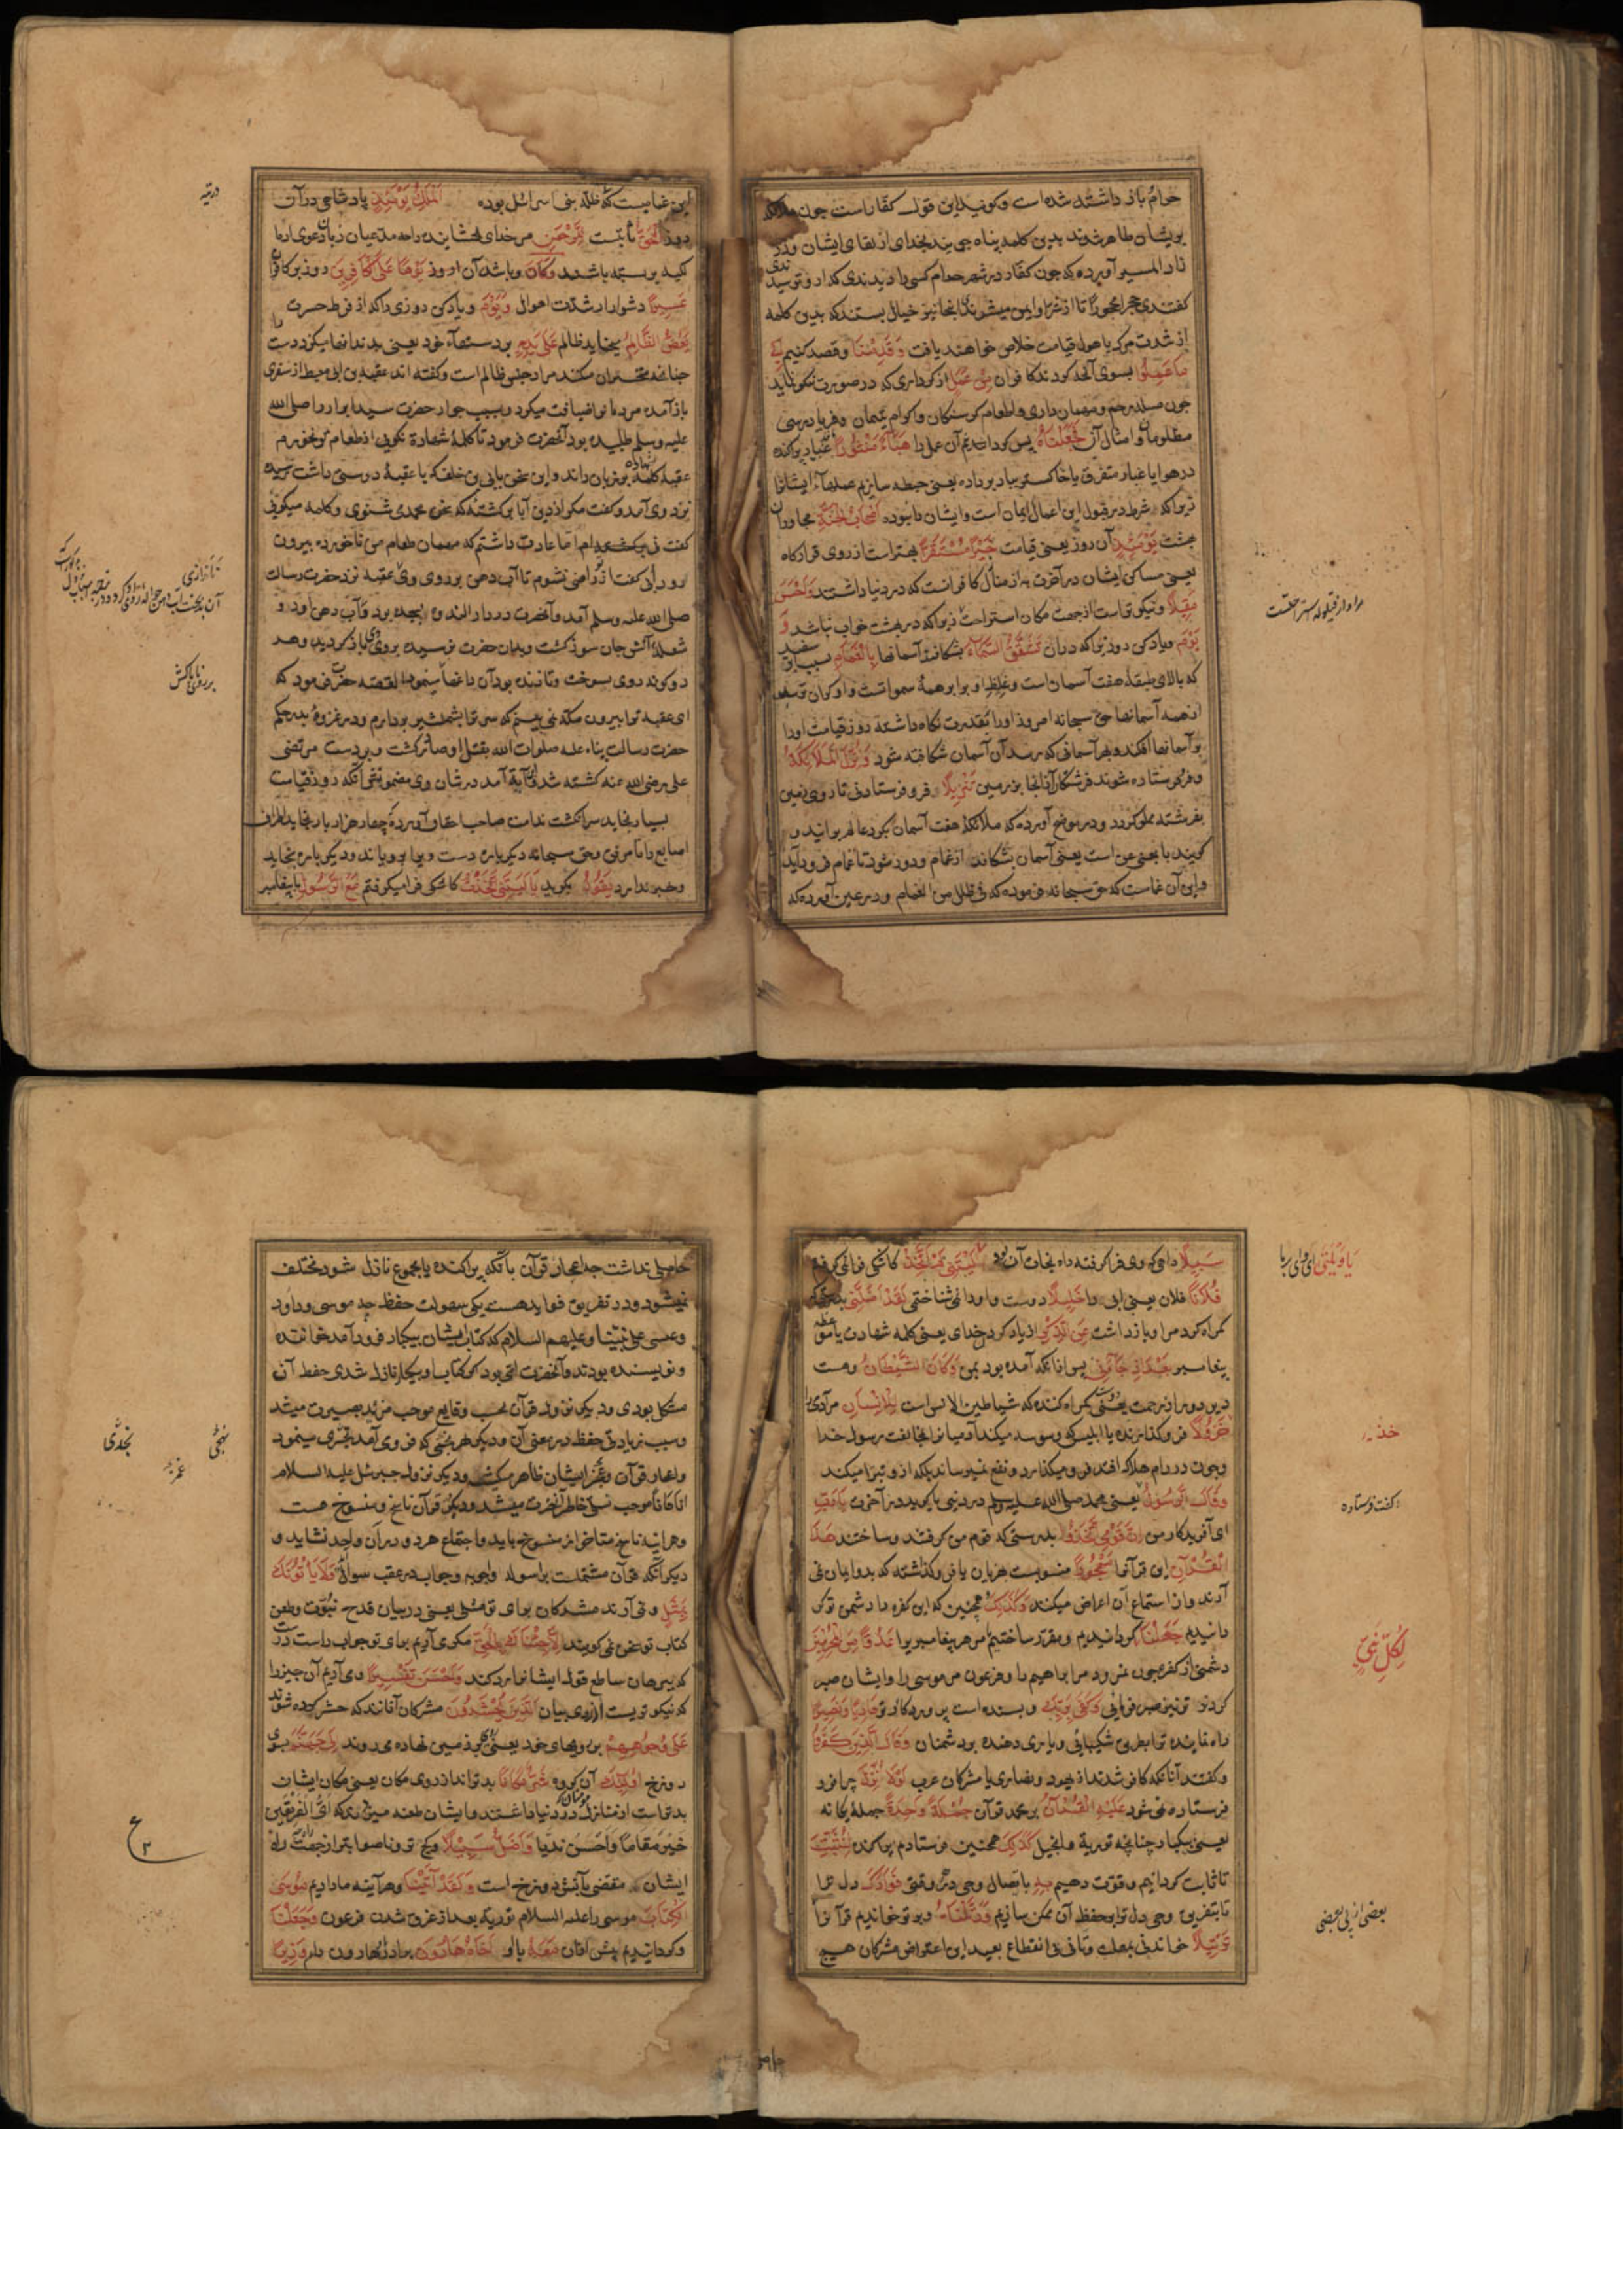 حرام باز داشته شده است و گویند این قول کفارست چون ملائکه
بریشان ظاهر شوند بدین کلمه پناه جویند بخدای از لقای ایشان و در
زاد المسیر آورده که چون کفار در شهر حرام کسی را دیدندی که ازو ترسیدندی
گفتندی حجرا محجورا تا از شر او ایمن میشدند اینجا نیز خیال بستند که بدین کلمه
از شدت مرک یا هول قیامت خلاص خواهند یافت وَقَدِمْنَا و قصد کنیم اِلٰی
مَا عَمِلُوا بسوی آنچه کردند کافران مِنْ عَمَلٍ از کرداری که در صورت نیکو نماید
چون صله رحم و مهمان داری و اطعام گرسنگان و اکرام یتیمان و فریادرسی
مظلومان و امثال آن فَجَعَلْنَاهُ پس گردانیدیم آن عمل را هَبَاءً مَنْثُورًا غبار پراکنده
در هوا یا غبار متفرق یا خاکستر بباد بر داده یعنی حبطه سازیم عملهاء ایشانرا
زیرا که شرط در قبول این اعمال ایمان است و ایشان را نبوده اَصْحَابُ الْجَنَّةِ مجاوران
بهشت یَوْمَئِذٍ آن روز یعنی قیامت خَیْرٌ مُسْتَقَرًّا بهتراست از روی قرارگاه
یعنی مساکن ایشان در آخرت به از منازل کافرانست که در دنیا داشتند وَاَحْسَنُ
مَقِیلًا و نیکوتراست از جهت مکان استراحت زیرا که در بهشت خواب نباشد وَ
یَوْمَ و یاد کن روزیرا که دران تَشَقَّقُ السَّمَاءُ بشکافد آسمانها بِالْغَمَامِ بسبب ابر سفید
که بالای طبقۀ هفت آسمان است و غلظ او برابر همۀ سمواتست و او گران ترست
از همه آسمانها حق سبحانه امروز اورا بقدرت نگاه داشته روز قیامت اورا
بر آسمانها افکند و بهر آسمانی که رسد آن آسمان شکافته شود وَنُزِّلَ الْمَلَائِکَةُ
و فرو فرستاده شوند فرشتگان از انجا بزمین تَنْزِیلًا فرو فرستادنی تا روی زمین
بفرشته مملو گردد و در موضح آورده که ملائکۀ هفت آسمان بگرد عالم برآیند و
گویند با بمعنی عن است یعنی آسمان بشکافد از غمام و دور شود تا غمام فرود آید
و این آن غمامست که حق سبحانه فرموده که فی ظلل من الغمام و در عین آورده که
مراد از قیلوله استراحتست
این غمامیست که ظلّه بنی اسرائیل بوده اَلْمُلْکُ یَوْمَئِذٍ پادشاهی در آن
روز اَلْحَقُّ ثابتست لِلرَّحْمٰنِ مر خدای بخشاینده را همه مدعیان زبان دعوی از ما
لکیه بر بسته باشند وَکَانَ و باشد آن روز یَوْمًا عَلَی الْکَافِرِینَ روز بر کافران
عَسِیرًا دشوار از شدت اهوال وَیَوْمَ و یاد کن روزی را که از فرط حسرت
یَعَضُّ الظَّالِمُ بخاید ظالم عَلٰی یَدَیْهِ بر دستهاء خود یعنی بدندانها بگزد دست را
چنانچه متحیران میکنند مراد جنس ظالم است و گفته اند عقبه بن ابی معیط از سفری
باز آمده مردمانرا ضیافت میکرد و بسبب جوار حضرت سید ابرار را صلی الله
علیه و سلم طلبیده بود آنحضرت فرمود تا کلمۀ شهادة نکویی از طعام تو نخورم
عقبه کلمۀ شهاده بر زبان راند و این سخن بابی بن خلف که با عقبۀ دوستی داشت رسید
نزد وی آمد و گفت مگر از دین آبا برگشتۀ که سخن محمد می شنوی و کلمه میگویی
گفت نی برنگشته ام اما عارت داشتم که مهمان طعام من ناخورده بیرون
رود ابی گفت از تو راضی نشوم تا آب دهن بر روی وی عقبه نزد حضرت رسالت
صلی الله علیه وسلم آمد و آنحضرت در دار الندوه بسجده بود و آب دهن او دو
شعلۀ آتش جان سوز گشت و بدان حضرت نرسیده بروی باز گردید و هر
دو گونه روی بسوخت و تا زنده بود آن داغها می نمود القصه حضرت فرمود که
ای عقبه ترا بیرون مکه نمی بینم که سر ترا بشمشیر بردارم و در غزوۀ بدر حکم
حضرت رسالت پناه علیه صلوات الله بقتل او صادر گشت و بر دست مرتضی
علی رضی الله عنه کشته شد این آیة آمد در شان وی مضمونش آنکه روز قیامت
بسیار بخاید سر انگشت ندامت صاحب کشاف آورده چهار هزار بار بخاید اطراف
اصابع را تا مرفق و حق سبحانه دیگرباره دست و پا برویاند و دیگرباره بخاید
و خبر ندارد یَقُولُ بگوید یَا لَیْتَنِی اتَّخَذْتُ کاشکی فرا میگرفتم مَعَ الرَّسُولِ با پیغامبر
سَبِیلًا راهی که وی فرا گرفته راه نجات آن بود لَیْتَنِی لَمْ اَتَّخِذْ کاشکی فرا نمی گرفتم
فُلَانًا فلان یعنی ابی را خَلِیلًا دوست و اورا نمی شناختم لَقَدْ اَضَلَّنِی بدرستی که
گمراه کرد مرا و باز داشت عَنِ الذِّکْرِ از یاد کردن خدای یعنی کلمه شهادت یا موعظه
پیغامبر بَعْدَ اِذْ جَاءَنِی پس ازانکه آمده بود بمن وَکَانَ الشَّیْطَانُ و هست
خَذُولًا فرو گذارنده یا ابلیس که وسوسه میکند آدمیانرا بمخالفت رسول خدا
و چون در دام هلاک افتد فرو میگذارد و نفع نمیرساند بلکه ازو تبرا میکند
وَقَالَ الرَّسُولُ یعنی محمد صلی الله علیه وسلم در دنیی یا گوید در آخرت یَا رَبِّ
ای آفریدگار من اِنَّ قَوْمِی اتَّخَذُوا بدرستی که قوم من گرفتند و ساختند هٰذَا
الْقُرْاٰنَ این قرآنرا مَهْجُورًا منسوب بهذیان یا فرو گذاشته که بدو ایمان نمی
آرند و از استماع آن اعراض میکنند وَکَذٰلِکَ همچنین که این کفره را دشمن تو گر
دانیدیم جَعَلْنَا گردانیدیم و مقرر ساختیم مر هر پیغامبریرا عَدُوًّا مِنَ الْمُجْرِمِینَ
دشمنی از کفره چون نمرود مر ابراهیم را و فرعون مر موسی را و ایشان صبر
کردند تو نیز صبر فرمایی وَکَفٰی بِرَبِّکَ و بسنده است پروردگار تو هَادِیًا وَنَصِیرًا
راه نماینده ترا بطریق شکیبائی و یاری دهنده بر دشمنان وَقَالَ الَّذِینَ کَفَرُوا
و گفتند آنانکه کافر شدند از یهود و نصاری یا مشرکان عرب لَوْلَا نُزِّلَ چرا فرو
فرستاده نمی شود عَلَیْهِ الْقُرْاٰنُ بر محمد قرآن جُمْلَةً وَاحِدَةً جملۀ یگانه
یعنی بیکبار چنانچه توریة و انجیل کَذٰلِکَ همچنین فرستادم پراکنده لِنُثَبِّتَ
تا ثابت گردانیم و قوت دهیم بِهِ باتصال وحی در هر وقتی فُؤَادَکَ دل ترا
تا بتفریق وحی دل ترا بر حفظ آن ممکن سازیم وَرَتَّلْنَاهُ و بر تو خواندیم قرآنرا
تَرْتِیلًا خواندنی بمهلت و تانی بی انقطاع بعید این اعتراض مشرکان هیچ
یَا وَیْلَتٰی ای وای بر ما
گفت فرستاده
لِکُلِّ نَبِیٍّ
بعضی از پی بعضی
حاصلی نداشت چه اعجاز قرآن بآنکه پراکنده یا مجموع نازل شود مختلف
نمیشود و در تفریق فواید هست یکی سهولت حفظ چه موسی و داود
و عیسی علی نبینا و علیهم السلام که کتاب ایشان بیکبار فرود آمد خواننده
و نویسنده بودند و آنحضرت امی بود اگر کتاب او بیکبار نازل شدی حفظ آن
مشکل بودی و دیگر نزول قرآن بحسب وقایع موجب مزید بصیرت میشد
و سبب زیادتی حفظ در معنی آن و دیگر هر نجمی که فرو می آمد تحدی مینمود
و اعجاز قرآن و عجز ایشان ظاهر میگشت و دیگر نزول جبرئیل علیه السلام
آناً فاناً موجب تسلی خاطر آنحضرت میشد و دیگر قرآن ناسخ و منسوخ هست
و هر اینه ناسخ متاخر از منسوخ باید و اجتماع هر دو در آن واحد نشاید و
دیگر آنکه قرآن مشتملست بر اسوله و اجوبه و جواب در عقب سوال وَلَا یَاْتُونَکَ
بِمَثَلٍ و نمی آرند مشرکان برای تو مثلی یعنی در بیان قدح نبوت و طعن
کتاب تو سخن نمی گویند اِلَّا جِئْنَاکَ بِالْحَقِّ مگر می آریم برای تو جواب راست درست
که ببرهان ساطع قول ایشانرا رد کند وَاَحْسَنَ تَفْسِیرًا و می آریم آن چیز را
که نیکو تریست از روی بیان اَلَّذِینَ یُحْشَرُونَ مشرکان آنانند که حشر کرده شوند
عَلٰی وُجُوهِهِمْ بر رویهای خود یعنی روی بر زمین نهاده می روند اِلٰی جَهَنَّمَ بسوی
دوزخ اُولٰئِکَ آن گروه شَرٌّ مَکَانًا بدتراند از روی مکان یعنی مکان ایشان
بدتراست از منازل مؤمنان که در دنیا داشتند و ایشان طعنه میزدند که اَیُّ الْفَرِیقَیْنِ
خَیْرٌ مَقَامًا وَاَحْسَنُ نَدِیًّا وَاَضَلُّ سَبِیلًا و کج تر و ناصوابتر از جهت راه
ایشان مفضی بآتش دوزخ است وَلَقَدْ اٰتَیْنَا و هر آینه ما دادیم مُوسَی
الْکِتَابَ موسی را علیه السلام توریة بعد از غرق شدن فرعون وَجَعَلْنَا
و گردانیدیم پیش ازان مَعَهُ با او اَخَاهُ هَارُونَ برادر او هارون را وَزِیرًا
ع
۲